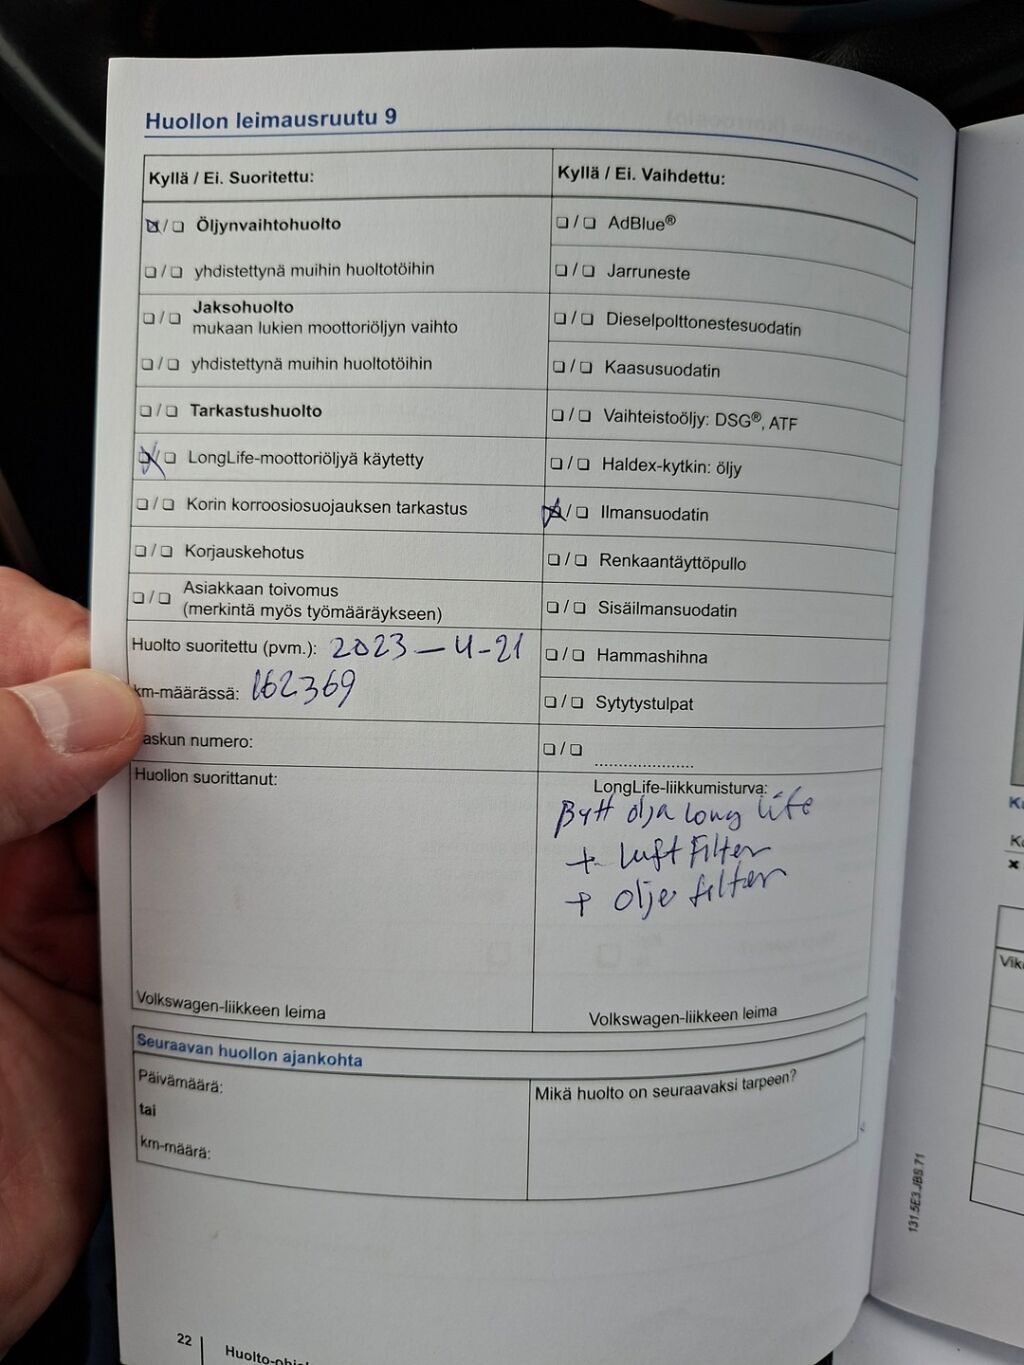 Huollon leimausruutu 9
Kyllä / Ei. Suoritettu:
Öljynvaihtohuolto
yhdistettynä muihin huoltotöihin
Jaksohuolto
mukaan lukien moottoriöljyn vaihto
yhdistettynä muihin huoltotöihin
Tarkastushuolto
LongLife-moottoriöljyä käytetty
Korin korroosiosuojauksen tarkastus
Korjauskehotus
Asiakkaan toivomus
(merkintä myös työmääräykseen)
Huolto suoritettu (pvm.): 2023-4-21
km-määrässä: 162369
askun numero:
Huollon suorittanut:
Volkswagen-liikkeen leima
Kyllä / Ei. Vaihdettu:
AdBlue®
Jarruneste
Dieselpolttonestesuodatin
Kaasusuodatin
Vaihteistoöljy: DSG®, ATF
Haldex-kytkin: öljy
Ilmansuodatin
Renkaantäyttöpullo
Sisäilmansuodatin
Hammashihna
Sytytystulpat
.....................
LongLife-liikkumisturva:
Bytt olja Long Life
+ Luft Filter
+ Olje filter
Volkswagen-liikkeen leima
Seuraavan huollon ajankohta
Päivämäärä:
tai
km-määrä:
Mikä huolto on seuraavaksi tarpeen?
131.5E3.JBS.71
22